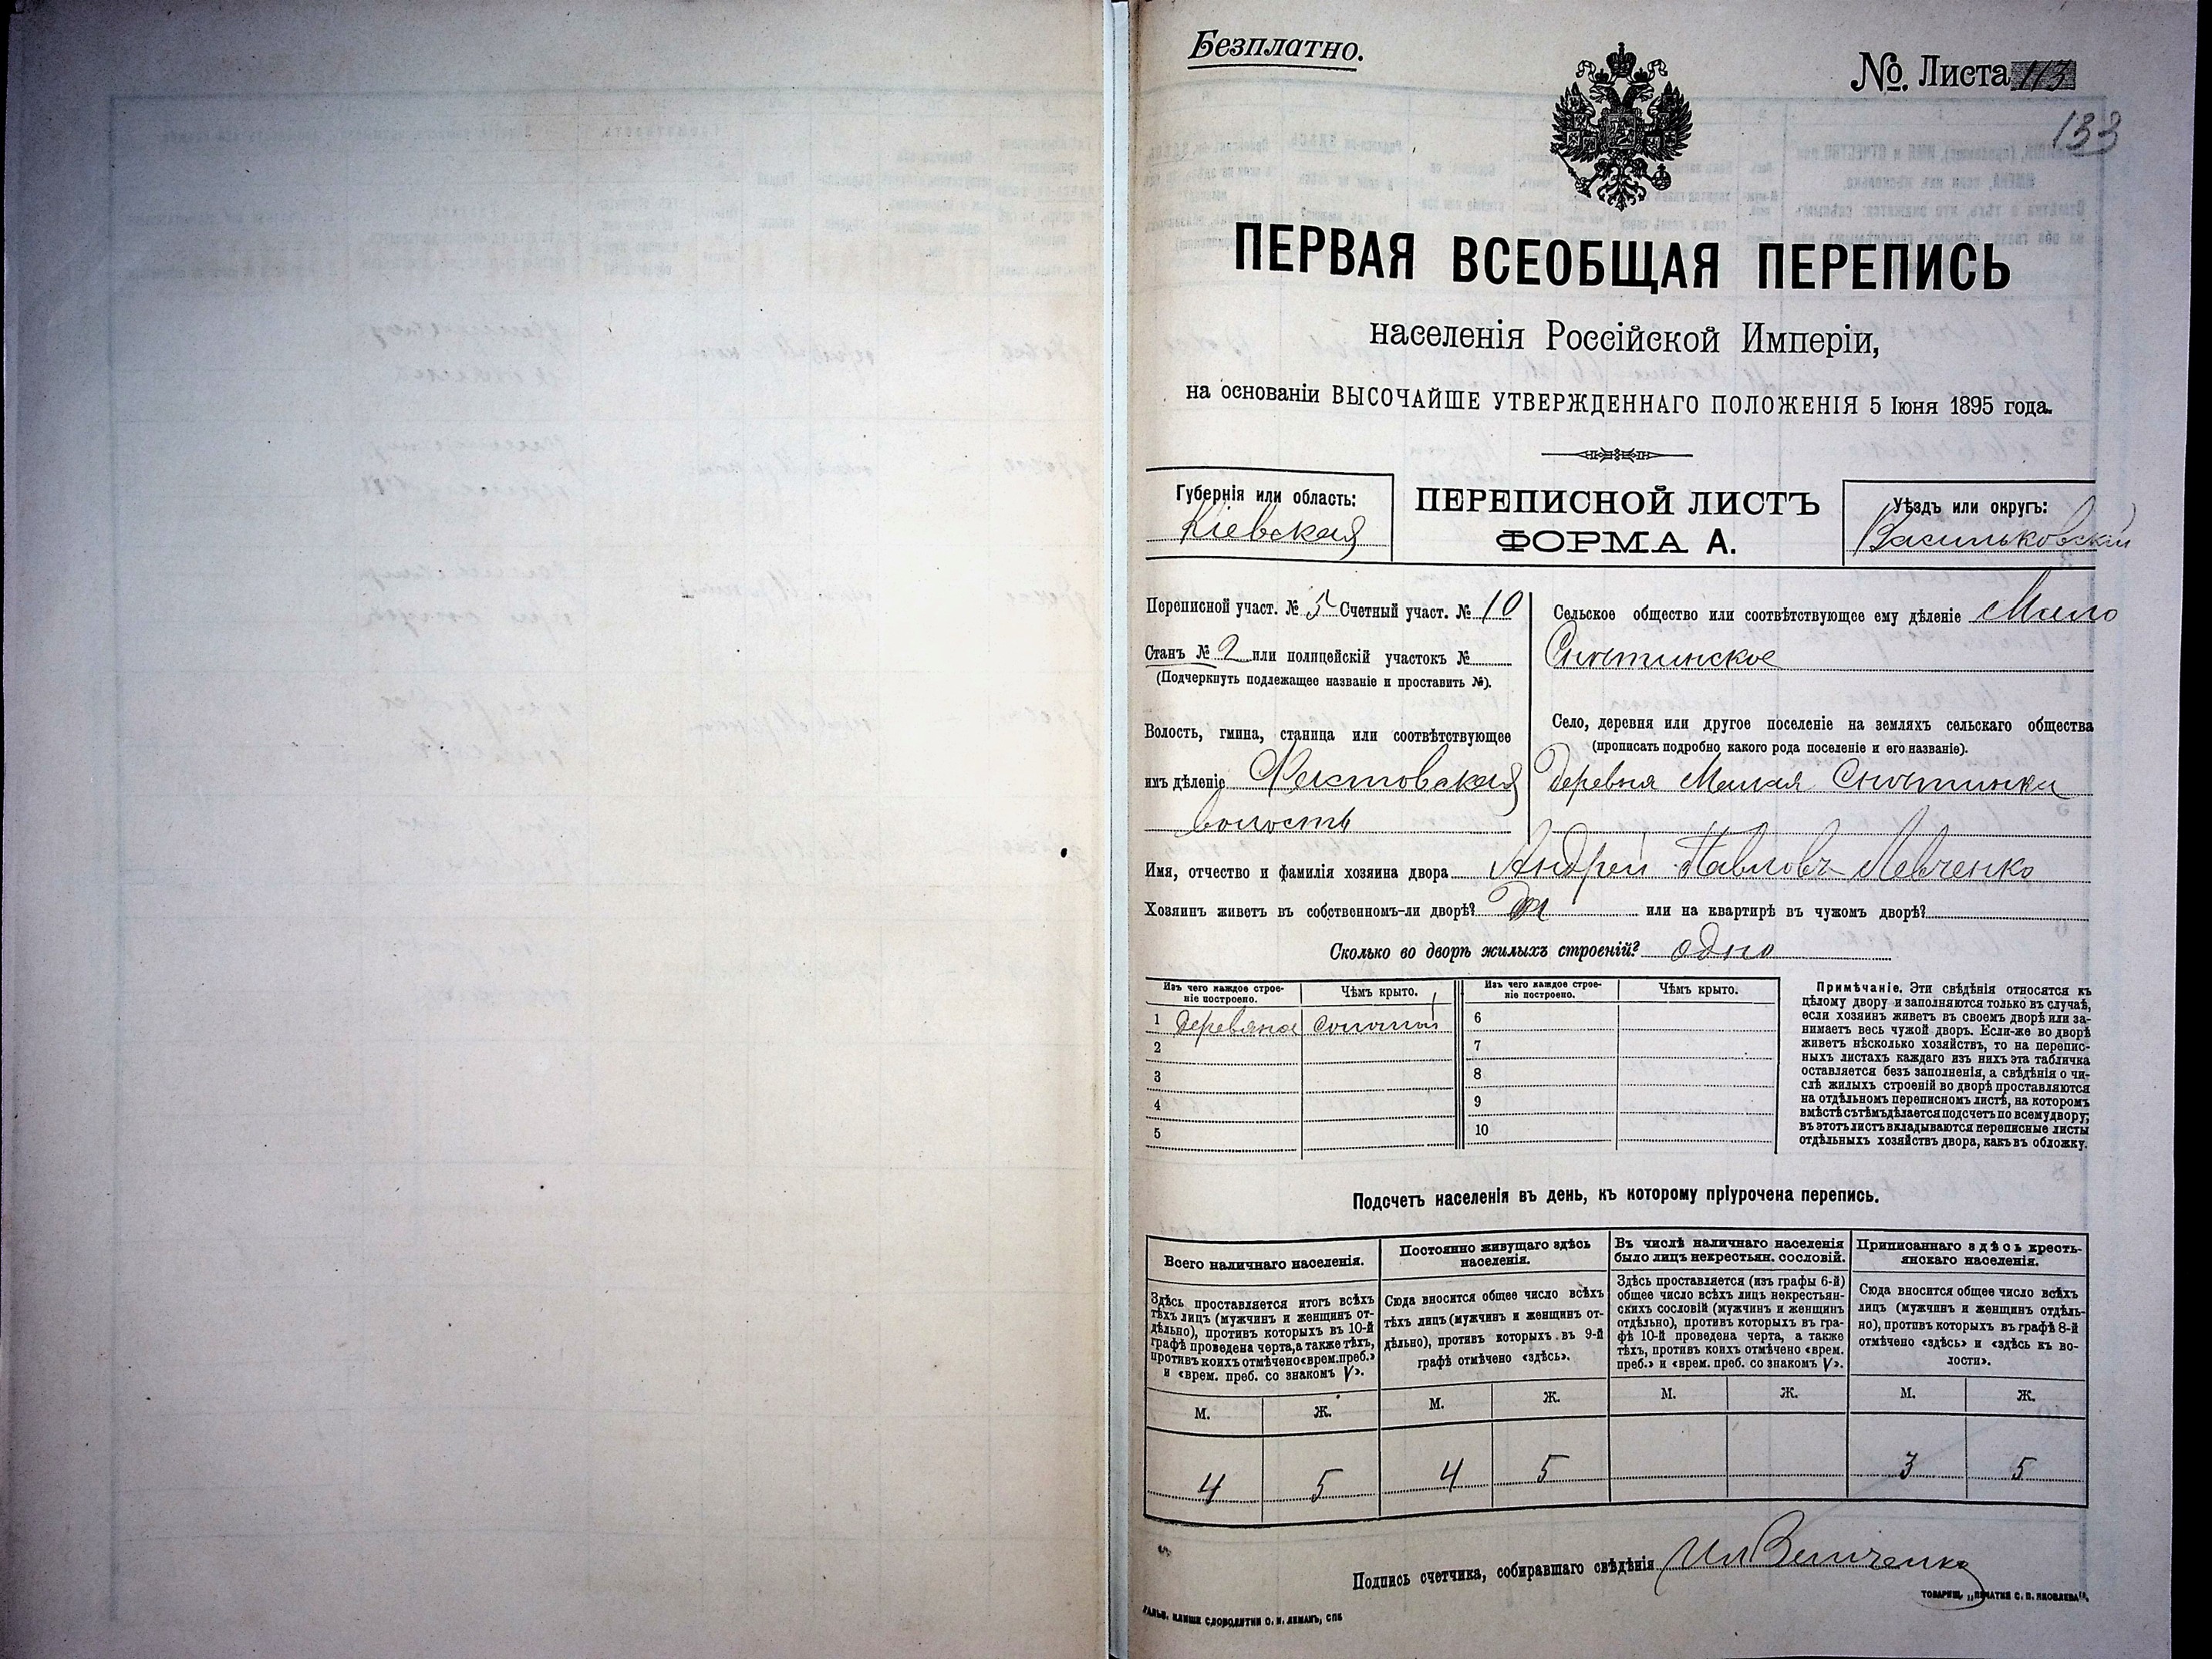 Безплатно.
№ Листа 113
133
ПЕРВАЯ ВСЕОБЩАЯ ПЕРЕПИСЬ
населенія Россійской Имперіи,
на основаніи ВЫСОЧАЙШЕ УТВЕРЖДЕННАГО ПОЛОЖЕНІЯ 5 Іюня 1895 года.
Губернія или область:
Кіевская
ПЕРЕПИСНОЙ ЛИСТЪ
ФОРМА А.
Уѣздъ или округъ:
Васильковскій
Переписной участ. № 5 Счетный участ. № 10
Станъ № 2 или полицейскій участокъ №
(Подчеркнуть подлежащее названіе и проставить №).
Волость, гмина, станица или соотвѣтствующее
имъ дѣленіе Фастовская
волость
Сельское общество или соотвѣтствующее ему дѣленіе Мало
Снѣтинское
Село, деревня или другое поселеніе на земляхъ сельскаго общества
(прописать подробно какого рода поселеніе и его названіе).
Деревня Малая Снѣтинка
Имя, отчество и фамилія хозяина двора Андрей Павловъ Левченко
Хозяинъ живетъ въ собственномъ-ли дворѣ? или на квартирѣ въ чужомъ дворѣ?
Сколько во дворѣ жилыхъ строеній? одно
Изъ чего каждое строе-
ніе построено.
Чѣмъ крыто.
1 деревяна соломой
2
3
4
5
Изъ чего каждое строе-
ніе построено.
Чѣмъ крыто.
6
7
8
9
10
Примѣчаніе. Эти свѣдѣнія относятся къ
цѣлому двору и заполняются только въ случаѣ,
если хозяинъ живетъ въ своемъ дворѣ или за-
нимаетъ весь чужой дворъ. Если-же во дворѣ
живетъ нѣсколько хозяйствъ, то на перепис-
ныхъ листахъ каждаго изъ нихъ эта табличка
оставляется безъ заполненія, а свѣдѣнія о чи-
слѣ жилыхъ строеній во дворѣ проставляются
на отдѣльномъ переписномъ листѣ, на которомъ
вмѣстѣ съ тѣмъ дѣлается подсчетъ по всему двору;
въ этотъ листъ вкладываются переписные листы
отдѣльныхъ хозяйствъ двора, какъ въ обложку.
Подсчетъ населенія въ день, къ которому пріурочена перепись.
Всего наличнаго населенія.
Здѣсь проставляется итогъ всѣхъ
тѣхъ лицъ (мужчинъ и женщинъ от-
дѣльно), противъ которыхъ въ 10-й
графѣ проведена черта, а также тѣхъ,
противъ коихъ отмѣчено «врем. преб.»
и «врем. преб. со знакомъ V».
М. Ж.
4 5
Постоянно живущаго здѣсь
населенія.
Сюда вносится общее число всѣхъ
тѣхъ лицъ (мужчинъ и женщинъ от-
дѣльно), противъ которыхъ въ 9-й
графѣ отмѣчено «здѣсь».
М. Ж.
4 5
Въ числѣ наличнаго населенія
было лицъ некрестьян. сословій.
Здѣсь проставляется (изъ графы 6-й)
общее число всѣхъ лицъ некрестьян-
скихъ сословій (мужчинъ и женщинъ
отдѣльно), противъ которыхъ въ гра-
фѣ 10-й проведена черта, а также
тѣхъ, противъ коихъ отмѣчено «врем.
преб.» и «врем. преб. со знакомъ V».
М. Ж.
Приписаннаго здѣсь кресть-
янскаго населенія.
Сюда вносится общее число всѣхъ
лицъ (мужчинъ и женщинъ отдѣль-
но), противъ которыхъ въ графѣ 8-й
отмѣчено «здѣсь» и «здѣсь къ во-
лости».
М. Ж.
3 5
Подпись счетчика, собиравшаго свѣдѣнія
ТОВАРИЩ. „ПЕЧАТНЯ С. П. ЯКОВЛЕВА“.
КЛИШЕ СЛОВОЛИТНИ О. И. ЛЕМАНЪ, СПБ